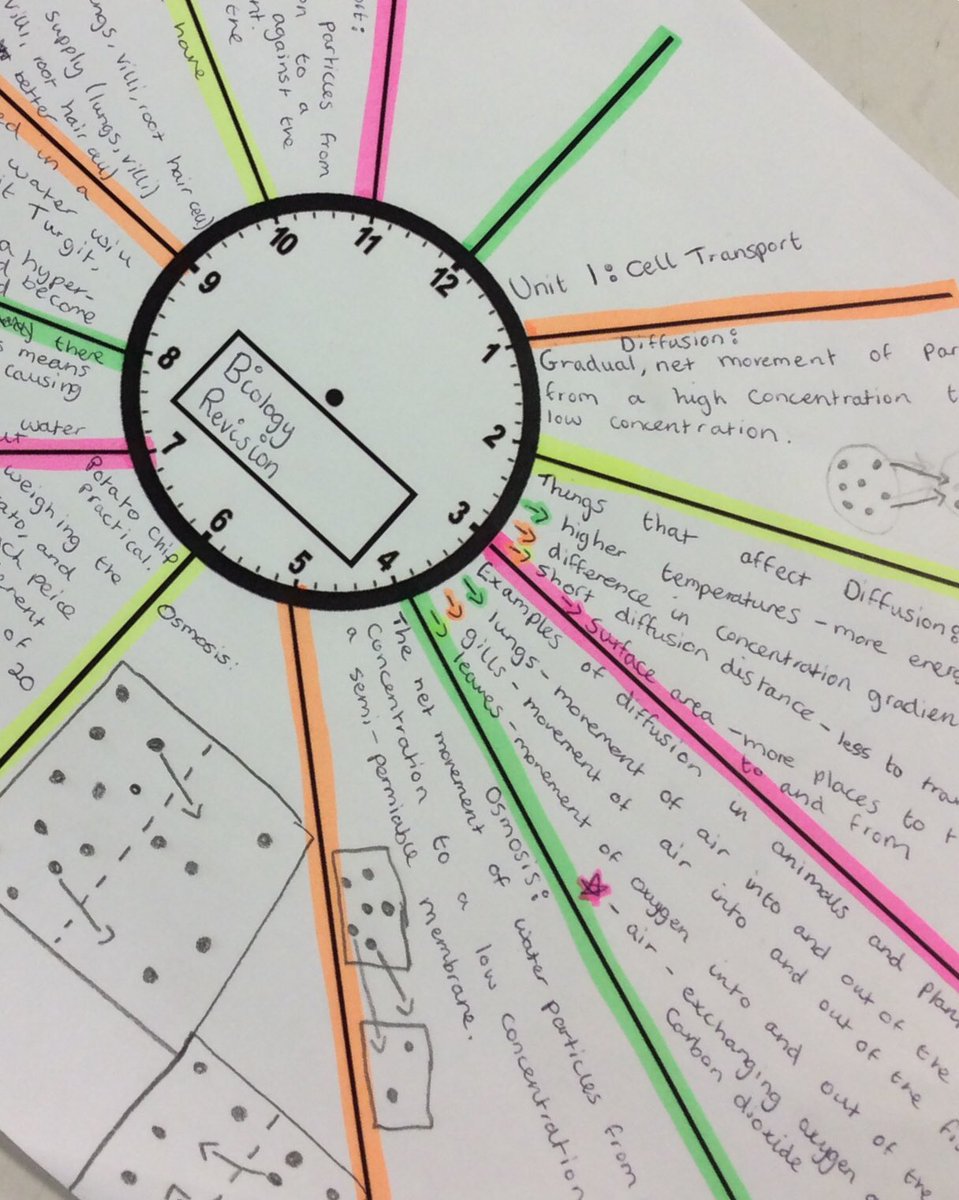 Biology
Revision
12
1
2
3
4
5
6
7
8
9
10
11
Unit 1: Cell Transport
Diffusion:
Gradual, net movement of par
from a high concentration t
low concentration.
Things that affect Diffusion:
→ higher temperatures - more ener
→ difference in concentration gradien
→ short diffusion distance - less to tra
→ surface area - more places to
to and from
Examples of diffusion in animals and plan
→ lungs - movement of air into and out of the
→ gills - movement of air into and out of the fi
→ leaves - movement of oxygen into and out of the
☆ - air - exchanging oxygen
Carbon dioxide
Osmosis:
The net movement of water particles from
a concentration to a low concentration
semi-permiable membrane.
Osmosis:
Potato chip
practical.
weighing the
ato, and
ch peice
erent
of
20
water
there
s means
causing
a hyper-
d become
ed in a
water will
it Turgit.
ngs, villi, root hair cell)
supply (lungs, villi)
villi, root hair cell)
better
have
ort:
on particles from
on to a
against the
nt.
the